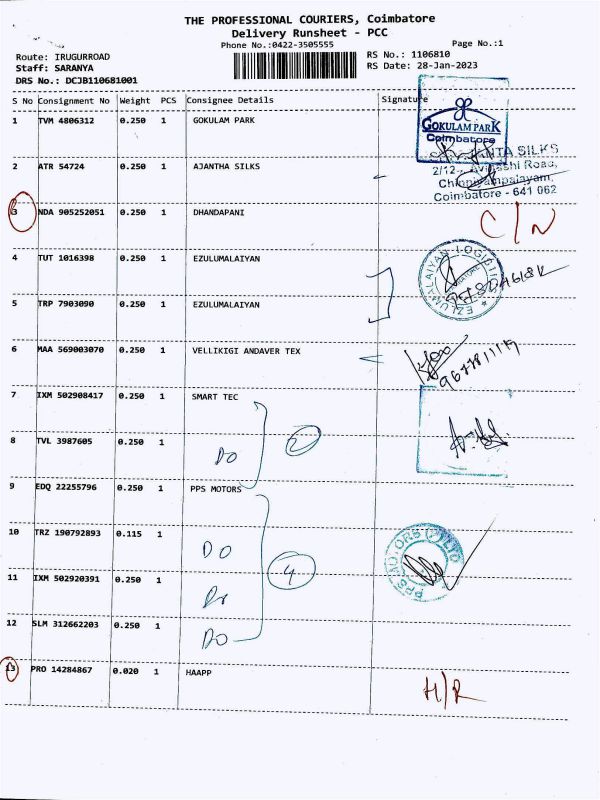 THE PROFESSIONAL COURIERS, Coimbatore
Delivery Runsheet - PCC
Phone No.:0422-3505555 Page No.:1
Route: IRUGURROAD RS No.: 1106810
Staff: SARANYA RS Date: 28-Jan-2023
DRS No.: DCJB110681001
S No Consignment No Weight PCS Consignee Details Signature
1 TVM 4806312 0.250 1 GOKULAM PARK
GOKULAM PARK
Coimbatore
2 ATR 54724 0.250 1 AJANTHA SILKS
SILKS
Road,
Coimbatore - 641 062
3 NDA 905252051 0.250 1 DHANDAPANI C/N
4 TUT 1016398 0.250 1 EZULUMALAIYAN
5 TRP 7903090 0.250 1 EZULUMALAIYAN
6 MAA 569003070 0.250 1 VELLIKIGI ANDAVER TEX
7 IXM 502908417 0.250 1 SMART TEC
8 TVL 3987605 0.250 1 DO 2
9 EDQ 22255796 0.250 1 PPS MOTORS
10 TRZ 190792893 0.115 1 DO
4
PPS MOTORS (P) LTD
11 IXM 502920391 0.250 1 Do
12 SLM 312662203 0.250 1 DO
13 PRO 14284867 0.020 1 HAAPP H/R